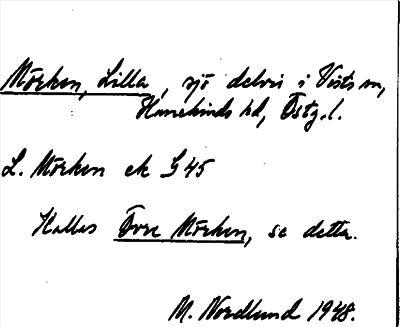 Mörken, Lilla, sjö delvis i Vists sn,
Hanekinds hd, Östg.l.
L. Mörken ek G45
Kallas Övre Mörken, se detta.
M. Nordlund 1948.